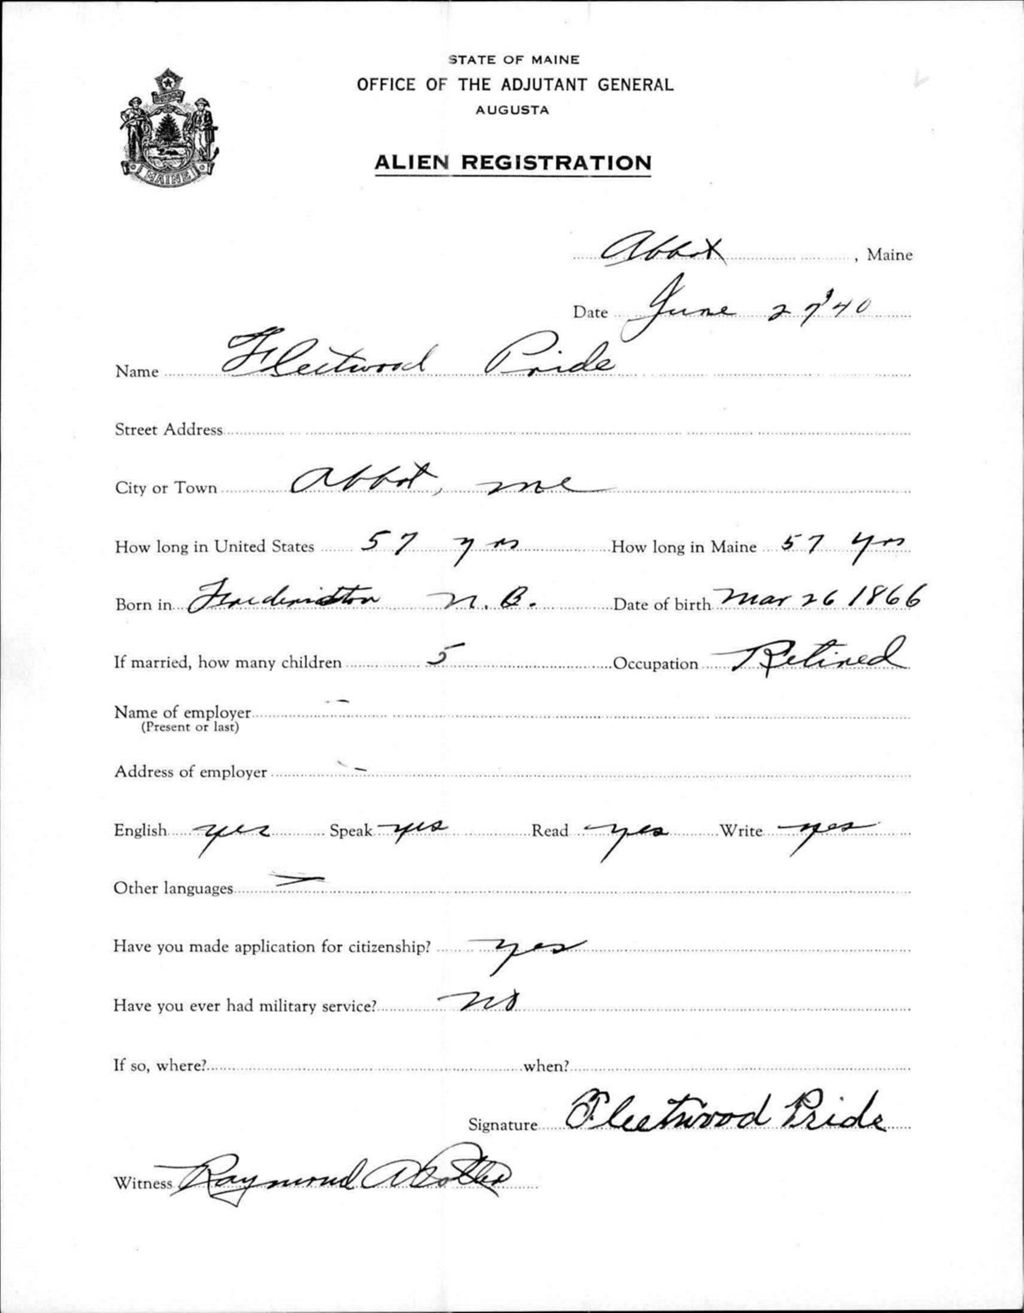 STATE OF MAINE
OFFICE OF THE ADJUTANT GENERAL
AUGUSTA
ALIEN REGISTRATION
MAINE
Abbot, Maine
Date June 27 '40
Name Fleetwood Pride
Street Address
City or Town Abbot, Me
How long in United States 57 yrs How long in Maine 57 yrs
Born in N. B. Date of birth Mar 26 1866
If married, how many children 5 Occupation Retired
Name of employer -
(Present or last)
Address of employer -
English yes Speak yes Read yes Write yes
Other languages -
Have you made application for citizenship? yes
Have you ever had military service? no
If so, where? when?
Signature Fleetwood Pride
Witness Raymond A